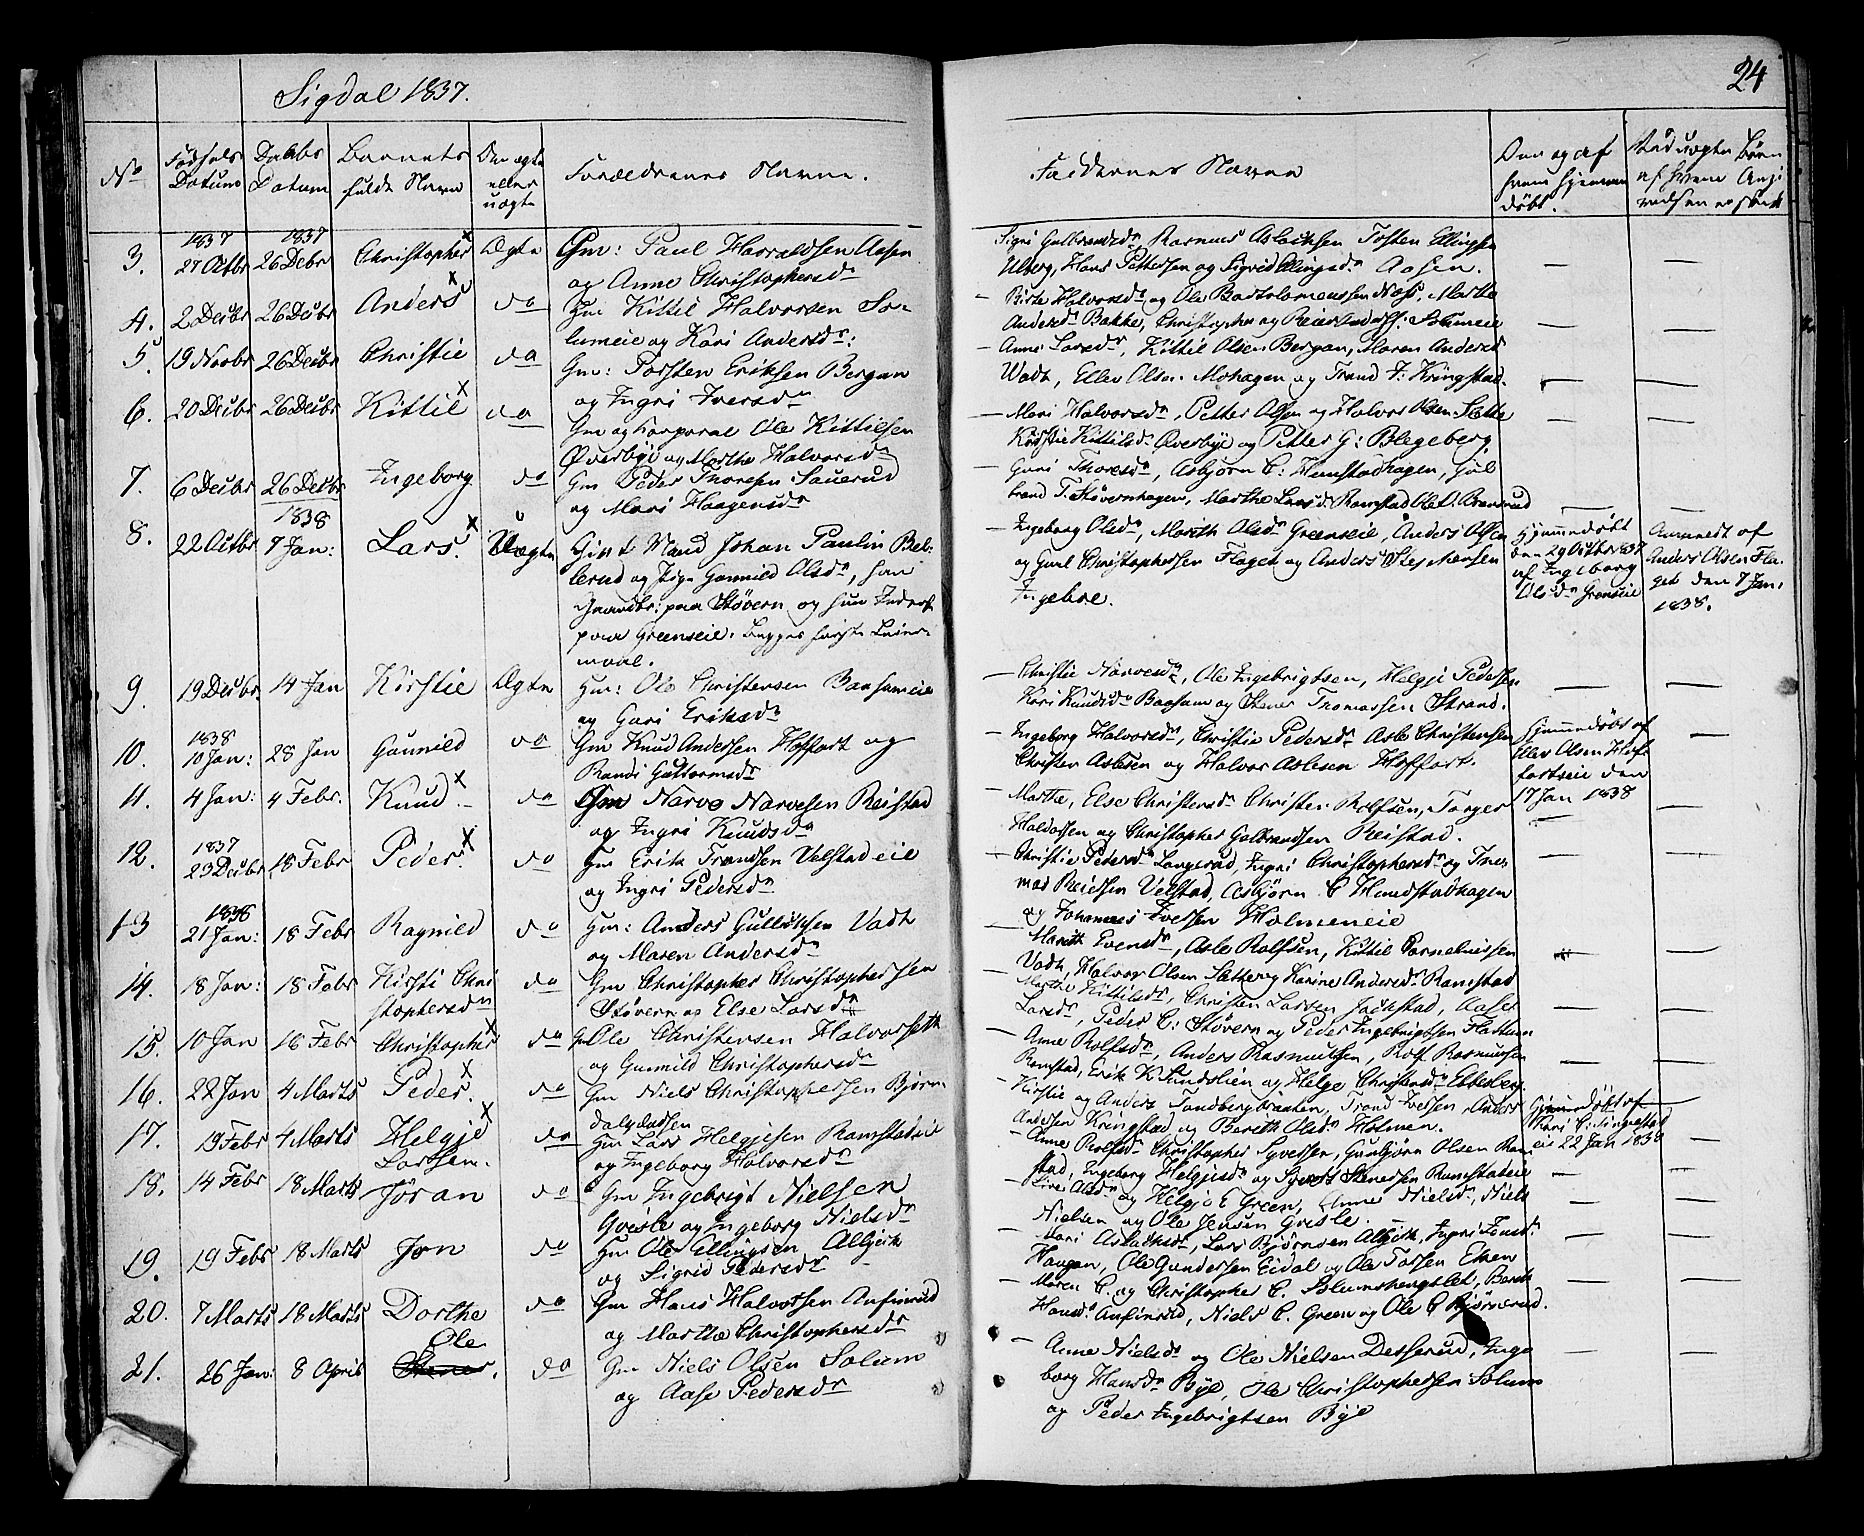 Sigdal 1837.
24
No
Fødsels Datum
Daabs Datum
Barnets fulde Navn
Om ægte eller uægte
Forældrenes Navne.
Faddernes Navne
Om og af hvem hjemmedøbt.
Ved uægte Børn af hvem Angivelsen er skeet
3. 1837 27 Octbr 1837 26 Debr Christopher Ægte Gm: Paul Haraldsen Aasen
og Anne Christophersdr
Sigri Gulbrandsdr, Rasmus Aslachsen Tosten Ellingsen
Ulberg, Hans Pettersen og Sigrid Ellingsdr Aasen.
4. 2 Decbr 26 Decbr Anders do Gm Kittil Halvorsen So-
lumeie og Kari Andersdr:
– Birte Halvorsdr og Ole Bartolomeussen Næss, Marthe
Andersdr Bakke, Christopher og Solumeie
5. 19 Novbr 26 Decbr Christie do Gm: Torsten Eriksen Bergan
og Ingri Iversdr
– Anne Larsdr, Kittil Olsen Bergan, Maren Andersdr
Vadt, Ellev Olsen Mohagen og Trond T: Kringstad.
6. 20 Decbr 26 Decbr Kittil do Gm og Korporal Ole Kittilsen
Øverbye og Marthe Halvorsdr
– Mari Halvorsdr, Petter Olsen og Halvor Olsen Sætte
Kirstie Kittilsdr Øverbye og Petter G: Blegeberg.
7. 6 Decbr 26 Decbr Ingeborg do Gm Peder Thoresen Sauerud
og Mari Haagensdr
– Guri Thoresdr, Asbjørn C: Hunstadhagen, Gul
brand T. Støvernhagen, Marthe Larsd. Ramstad Ole O. Brenerud
8. 22 Octbr 1838 7 Jan: Lars. Uægte Gift Mand Johan Paulin Bel-
lerud og Pige Gunnild Olsdr, han
paa Støvern og hun Inderst
paa Greenseie. Begges første Leier-
maal.
– Ingeborg Olsdr, Marth Olsdr Greenseie, Anders Olsen
og Gurl Christophersen Flaget og Anders Stephensen
Ingebre.
Hjemmedøbt den 29 Octbr 1837 af Ingeborg Olsdr Grønseie
Anmeldt af Anders Olsen Flaget den 7 Jan: 1838.
9. 19 Decbr. 14 Jan Kirstie Ægte Gm: Ole Christensen Baasumeie
og Guri Eriksdr
– Christie Narvesdr, Ole Ingebrigtsen, Helgje Pedersen
Kari Knudsdr Baasum og Stener Tromassen Strand.
10. 1838 10 Jan: 28 Jan Gunnild do Gm Knud Andersen Hoffart og
Randi Guttormsdr
– Ingeborg Halvorsdr, Christie Pedersdr Asle Christensen
Christen Aslesen og Halvor Aslesen Hoffart.
Hjemmedøbt af Ellev Olsen Hoffartseie den 17 Jan 1838
11. 4 Jan: 4 Febr. Knud. do Gm Narve Narvesen Reistad
og Ingri Knudsdr
– Marthe, Else Christensdr Christen Rolfsen, Torger
Haldorsen og Christopher Gulbrandsen Reistad.
12. 1837 23 Decbr 18 Febr Peder do Gm Erik Trondsen Velstadeie
og Ingri Pedersdr
– Christie Pedersdr Langerud, Ingri Christophersdr og
Reiersen Velstad, Asbjørn C Hundstadhagen
og Johannes Iversen Holmeneie
13 1838 21 Jan: 18 Febr Ragnild do Gm: Anders Gulliksen Vadt
og Maren Andersdr
– Marith Evensdr, Asle Rolfsen, Kittil Cornelinssen
Vadt, Halvor Olsen Sætter og Karine Andersdr Ramstad
14. 18 Jan: 18 Febr Kirsti Chri
stophersdr do Gm Christopher Christophersen
Støvern og Else Larsdr
– Marthe Kittilsdr, Christen Larsen Jachstad, Aase
Larsdr, Peder C: Støvern og Peder Ingebrigtsen Flattum
15. 10 Jan 18 Febr Christopher do Gm Ole Christensen Halvorseth
og Gunnild Christophersdr
– Anne Rolfsdr, Anders Rasmussen, Rolf Rasmussen
Ramstad, Erik K Sundslien og Helge Christensdr
16. 22 Jan 4 Marts Peder. do Gm Niels Christophersen Bjørn
dalsødden
– Kirstie og Anders Sandbergbraaten, Trond Iversen, Anders
Andersen Kringstad og Bereth Olsdr Holmen.
Hjemmedøbt af Kari C: eie 22 Jan 1838
17. 19 Febr 4 Marts Helgje
Larsen. do Gm Lars Helgjesen Ramstadeie
og Ingeborg Halvorsdr
– Anne Rolfsdr Christopher Syversen, Gunbjørn Olsen Ram
stad, Ingeborg Helgjesdr og Syvert Stenersen Ramstadeie
18. 14 Febr 18 Marts Jøran do Gm Ingebrigt Nielsen
Grøsle og Ingeborg Nielsdr
– Siri Olsdr og Helgje E Green, Anne Nielsdr, Niels
Nielsen og Ole Jensen Grøsle.
19. 19 Febr 18 Marts Jon do Gm Ole Ellingsen Albjerk
og Sigrid Pedersdr
– Kari Aslaksdr, Lars Bjørnsen Albjerk, Ingri Jonsdr
Haugan, Ole Gundersen Eidal og Ole Torsen Eken
20. 7 Marts 18 Marts Dorthe do Gm Hans Halvorsen Anfinrud
og Marthe Christophersdr
– Maren C. og Christopher C. Solumshengslet, Berth
Hansdr Anfinrud, Niels C. Green og Ole C Bjørnerud.
21. 26 Jan: 8 April Ole
Stener. do Gm Niels Olsen Solum
og Aase Pedersdr
– Anne Nielsdr og Ole Nielsen Desserud, Inge
borg Hansdr Bye, Ole Christophersen Solum
og Peder Ingebrigtsen Bye